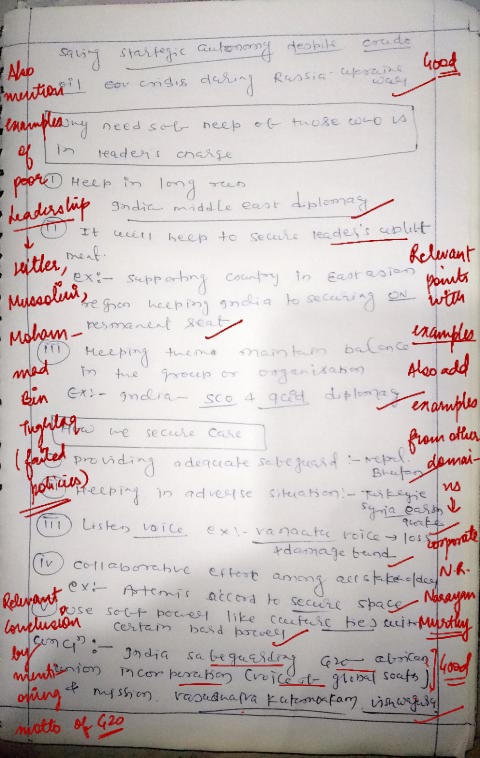 saving startegic autonomy despite crude
oil crisis during Russia-Ukraine
war
Good
Also
mention
examples
of
poor
Leadership
↓
Hitler,
Mussolini,
Moham-
mad
Bin
Tughlaq
(failed
policies)
Why need of help of those who is
in leader's charge
i) Help in long run
India middle east diplomacy
ii) It will help to secure leader's uplift
ment.
ex:- supporting country in East asian
region helping India to securing UN
permanent seat
iii) Helping them maintain balance
in the group or organisation
Ex:- India- SCO & quad diplomacy
Relevant
points
with
examples
Also add
examples
from other
domai-
ns
↓
corporate
N.R.
Narayan
Murthy
How we secure care
i) Providing adequate safeguard:- Nepal.
Bhutan
ii) Helping in adverse situation:- Turkeyie
Syria earth
quake
iii) Listen voice ex:- vanuatu voice → loss
& damage fund
iv) collaborative effort among all stakeholder
ex: Artemis accord to secure space
use soft power like culture ties with
certain hard power
concn:- India safeguarding G20 african
union incorporation (voice of global south)
& mission vasudhaiva kutumbakam, vishwaguru
Good
Relevant
conclusion
by
menti-
oning
motto of G20